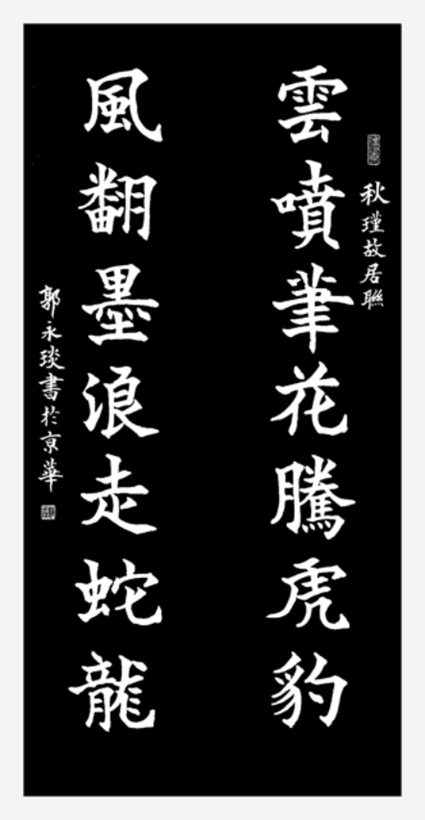 秋瑾故居聯
雲噴筆花騰虎豹
風翻墨浪走蛇龍
郭永琰書於京華